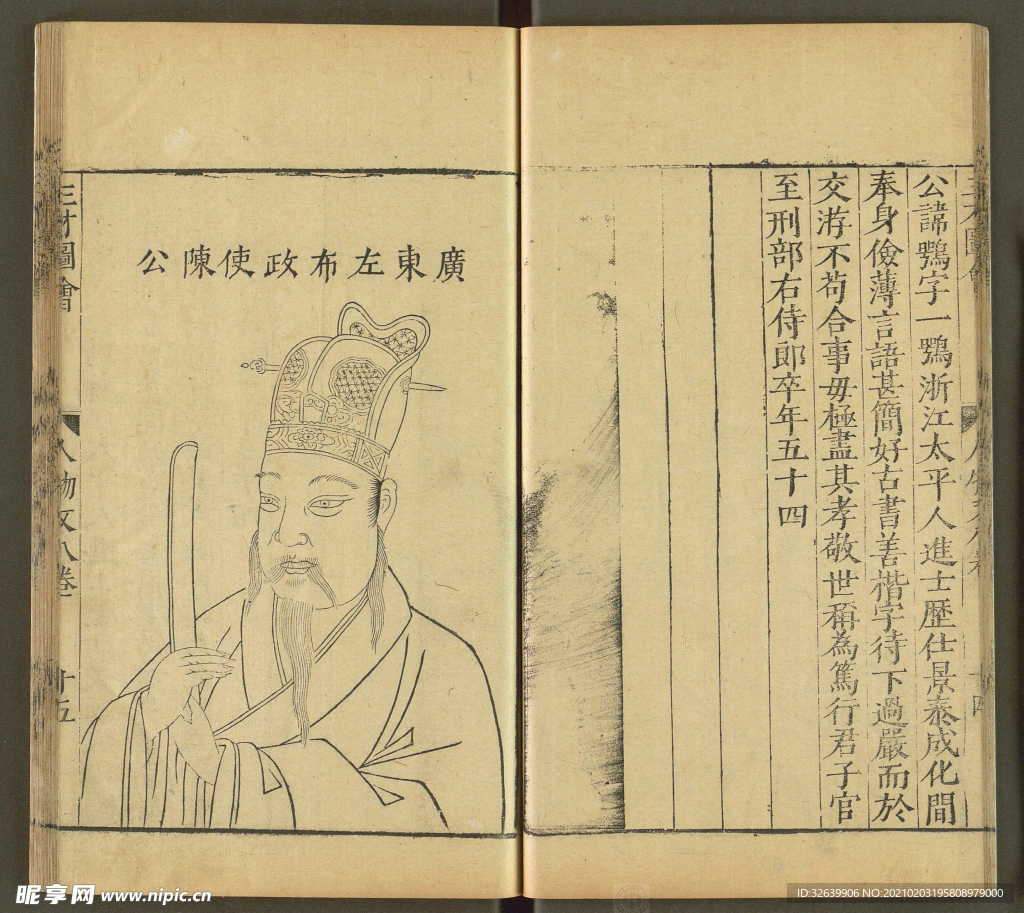 三才圖會
公諱鶚字一鶚浙江太平人進士歷仕景泰成化間
奉身儉薄言語甚簡好古書善楷字待下過嚴而於
交游不苟合事毋極盡其孝敬世稱為篤行君子官
至刑部右侍郎卒年五十四
廣東左布政使陳公
三才圖會
人物 八卷
十五
昵享网 www.nipic.cn
ID:32639906 NO:20210203195808979000